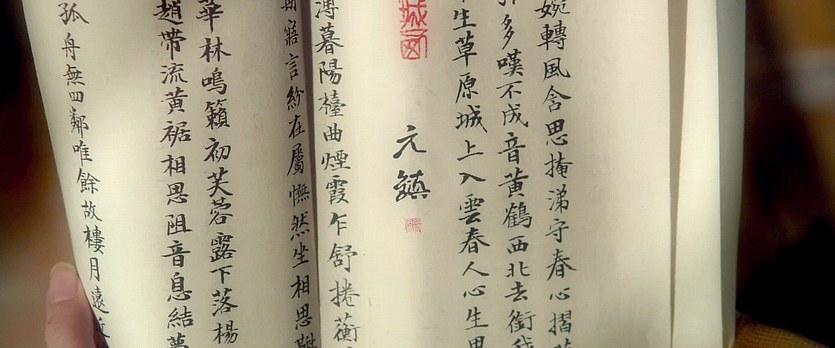 婉轉風含思掩涕守春心摺
引多嘆不成音黃鶴西北去銜我
生草原城上入雲春人心生思
元鎮
薄暮陽檯曲煙霞乍舒捲蘅
寤言紛在屬憮然坐相思
華林鳴籟初芙蓉露下落楊
趙帶流黃裾相思阻音息結夢
孤舟無四鄰唯餘故樓月遠近